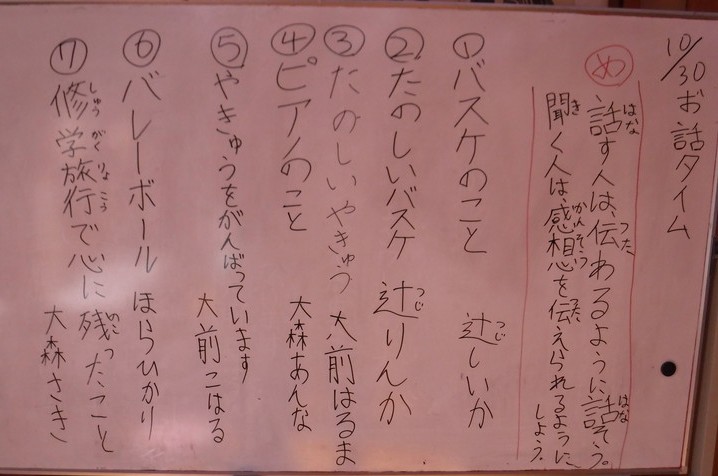 10/30 お話タイム
め
話す人は、伝わるように話そう。
聞く人は、感想を伝えられるように、
しよう。
①バスケのこと 辻しいか
②たのしいバスケ 辻りんか
③たのしいやきゅう 大前はるま
④ピアノのこと 大森あんな
⑤やきゅうをがんばっています 大前こはる
⑥バレーボール ほらひかり
⑦修学旅行で心に残ったこと 大森さき